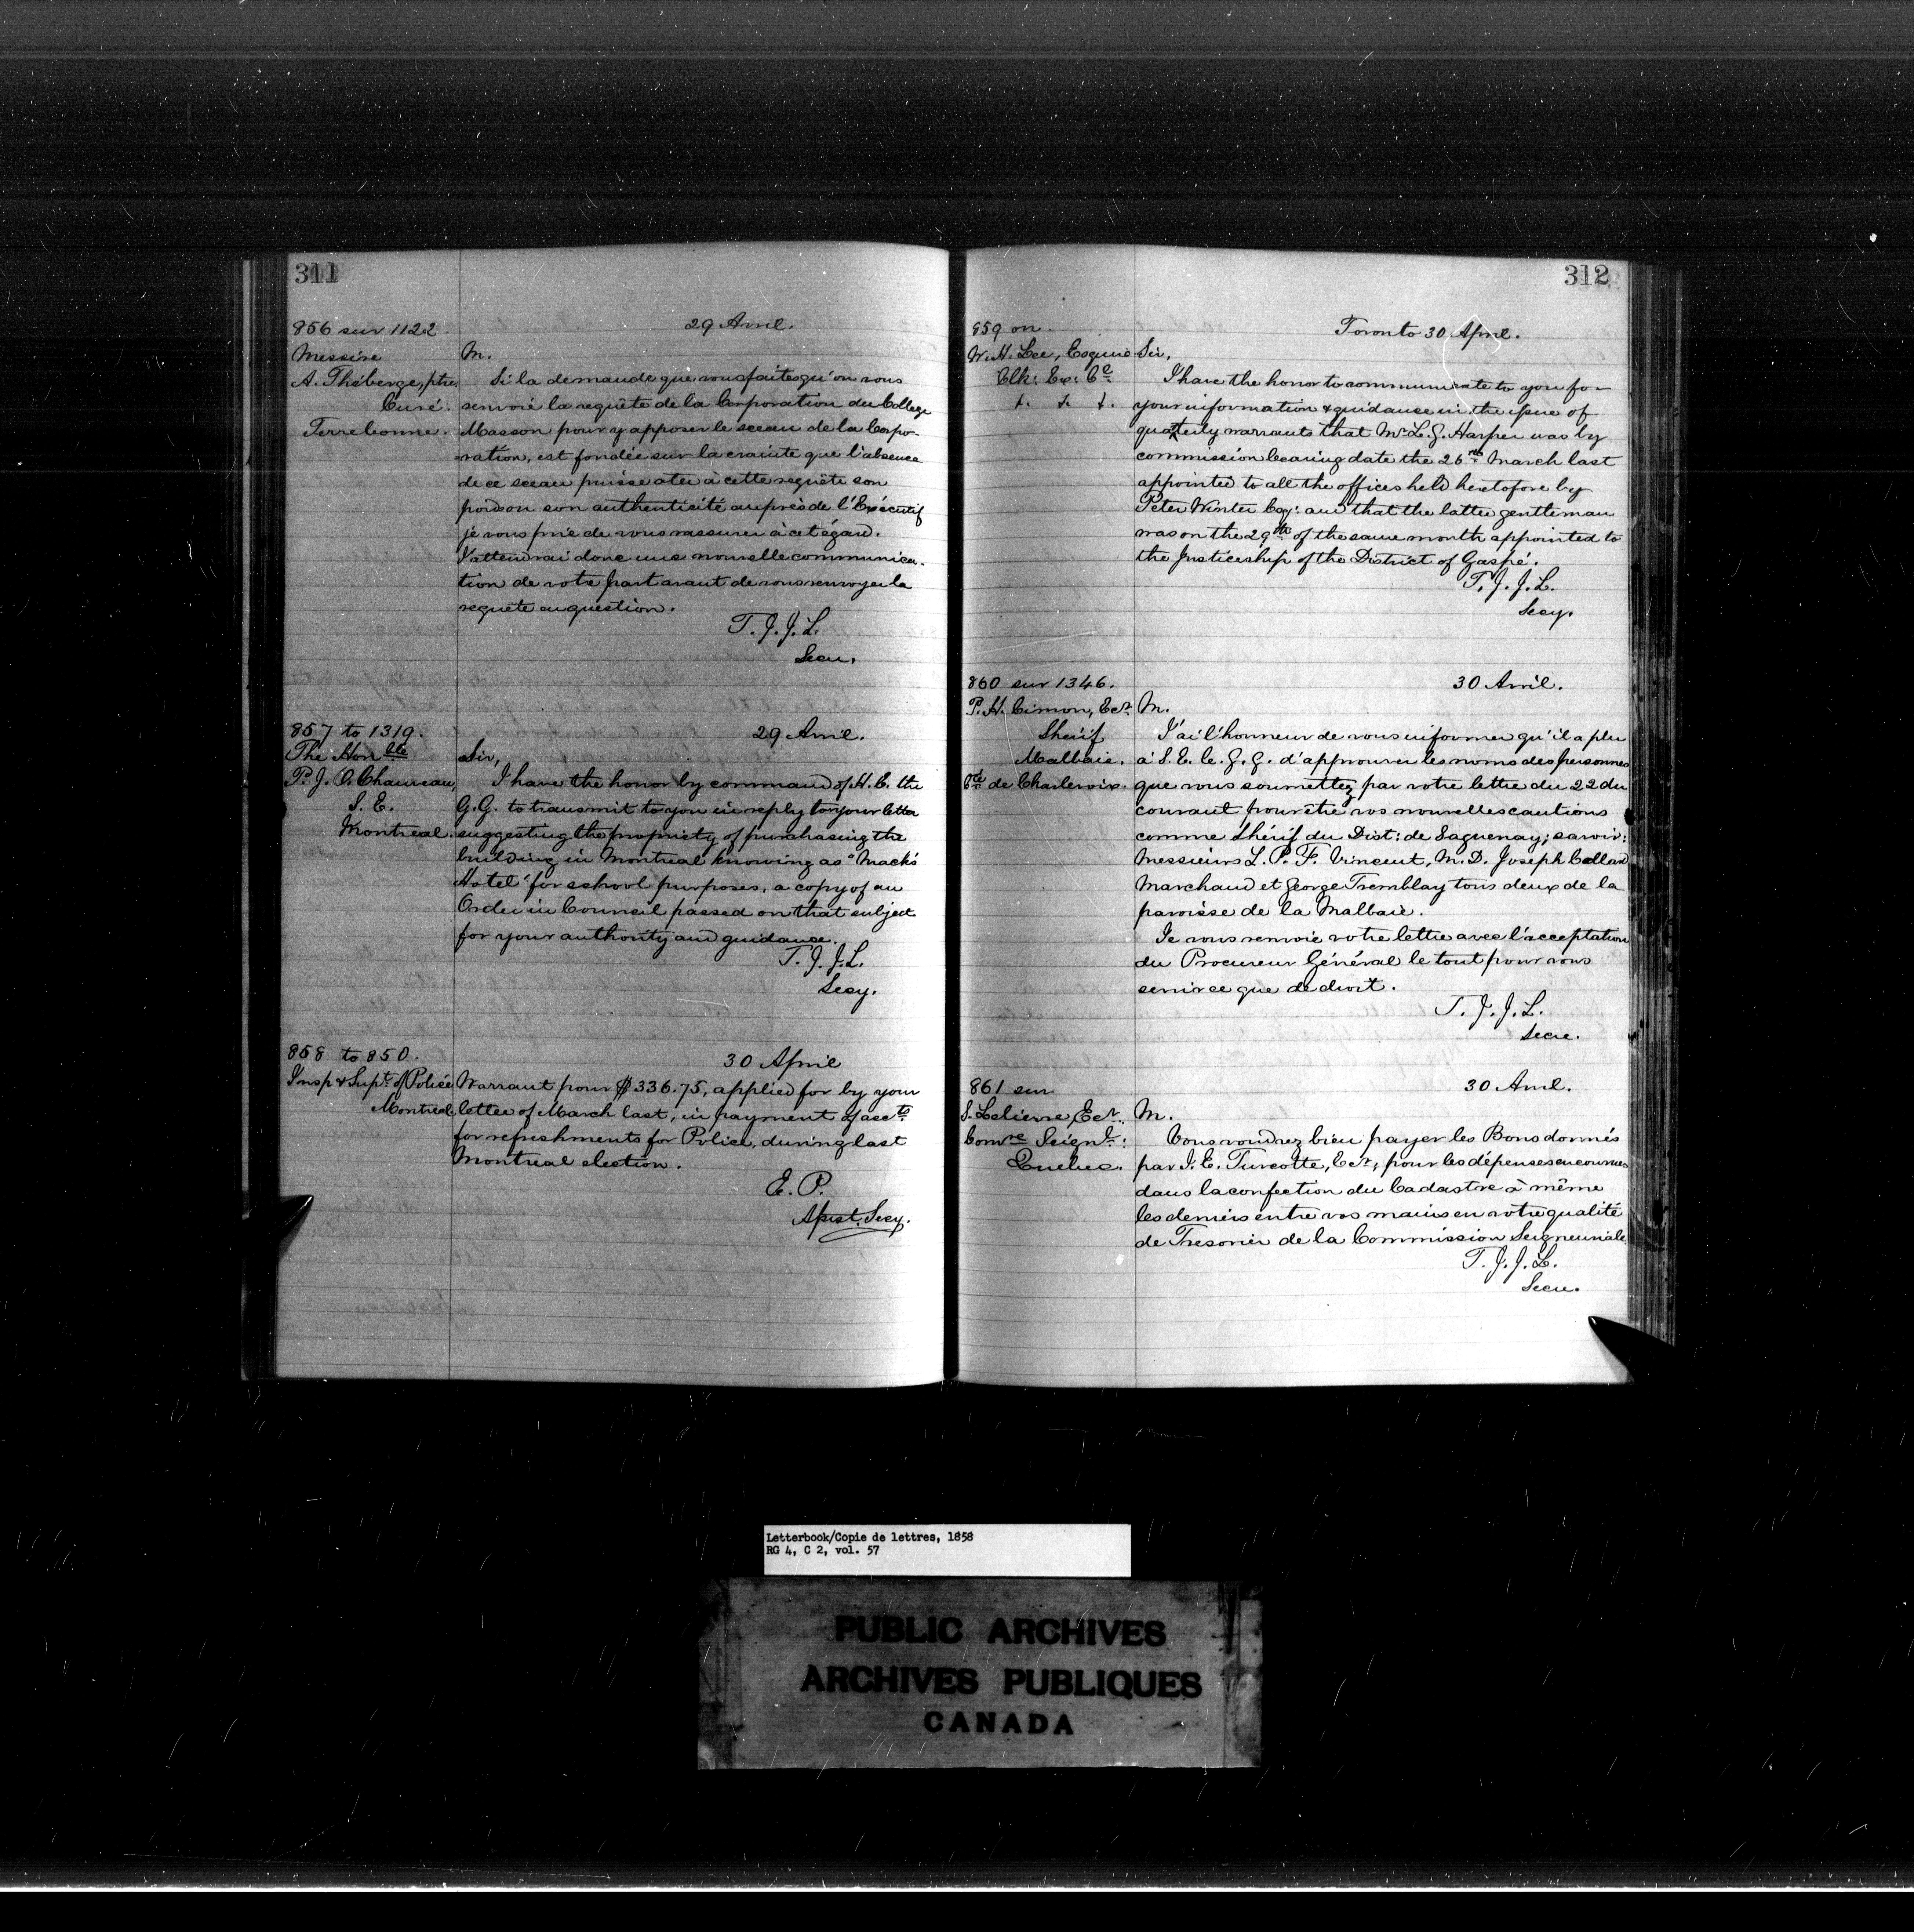 311
856 sur 1122.
29 Avril.
Messire
A. Théberge, ptre,
Curé.
Terrebonne.
M.
Si la demande que vous faites qu'on vous
renvoie la requête de la Corporation du College
Masson pour y apposer le sceau de la Corpo-
ration, est fondée sur la crainte que l'absence
de ce sceau puisse oter à cette requête son
poids ou son authenticité auprès de l'Exécutif
je vous prie de vous rassurer à cet égard.
J'attendrai donc une nouvelle communica-
tion de votre part avant de vous renvoyer la
requête en question.
T. J. J. L.
Secre.
857 to 1319.
29 Avril.
The Honble
P. J. O. Chauveau,
S. E.
Montreal.
Sir,
I have the honor by command of H. E. the
G. G. to transmit to you in reply to your letter
suggesting the propriety of purchasing the
building in Montreal knowing as "Mack's
Hotel" for school purposes, a copy of an
Order in Council passed on that subject
for your authority and guidance.
T. J. J. L.
Secy.
858 to 850.
30 April
Insp & Supt. of Police
Montreal.
Warrant pour $336.75, applied for by your
letter of March last, in payment of accts
for refreshments for Police, during last
Montreal election.
E. P.
Asst. Secy.
312
859 on.
Toronto 30 April.
W. H. Lee, Esquire
Clk: Ex: Cl
t. t. t.
Sir,
I have the honor to communicate to you for
your information & guidance in the issue of
quaterly warrants that Mr L. G. Harper was by
commission bearing date the 26th March last
appointed to all the offices held heretofore by
Peter Winter Esq: and that the latter gentleman
was on the 29th of the same month appointed to
the Justiceship of the District of Gaspé.
T. J. J. L.
Secy.
860 sur 1346.
30 Avril.
P. H. Cimon, Ecr
Shérif
Malbaie.
Cté de Charlevoix.
M.
J'ai l'honneur de vous informer qu'il a plu
à S. E. le. G. G. d'approuver les noms des personnes
que vous soumettez par votre lettre du 22 du
courant pour être vos nouvelles cautions
comme Shérif du Dist: de Saguenay; savoir:
Messieurs L. P. F. Vincent, M. D. Joseph Collard
Marchand et George Tremblay tous deux de la
paroisse de la Malbaie.
Je vous renvoie votre lettre avec l'acceptation
du Procureur Général le tout pour vous
servir ce que de droit.
T. J. J. L.
Secre.
861 sur
30 Avril.
S. Lelievre, Ecr.
Comre Seignl:
Quebec.
M.
Vous voudrez bien payer les Bons donnés
par J. E. Turcotte, Ecr, pour les dépenses encourues
dans la confection du Cadastre à même
les deniers entre vos mains en votre qualité
de Tresorier de la Commission Seigneuriale.
T. J. J. L.
Secre.
Letterbook/Copie de lettres, 1858
RG 4, C 2, vol. 57
PUBLIC ARCHIVES
ARCHIVES PUBLIQUES
CANADA